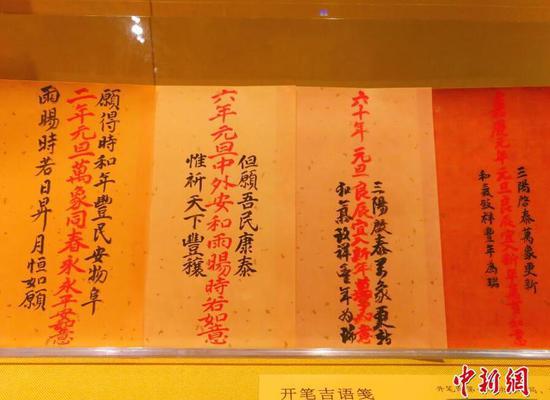 三陽啓泰萬象更新
慶元年元旦良辰宜入新年萬事如意
和氣致祥豐年為瑞
三陽啟泰萬象更新
六十年 元旦良辰宜入新年萬事如意
和氣致祥豐年為瑞
但願吾民康泰
六年元旦中外安和雨暘時若如意
惟祈天下豐穰
願得時和年豐民安物阜
二年元旦萬象同春永永平安如意
雨暘時若日昇月恒如願
开笔吉语笺
开笔
中新網